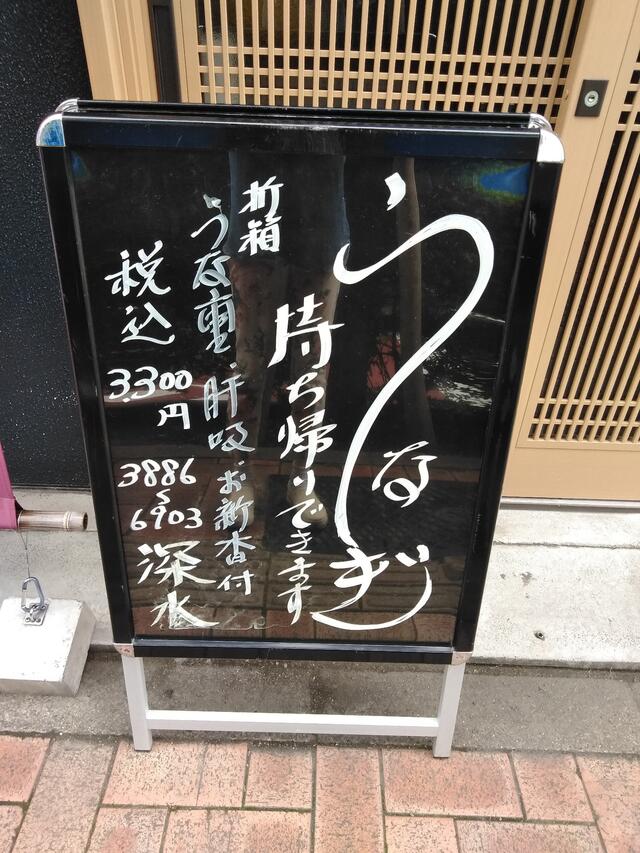 うなぎ
持ち帰りできます
折箱
うな重、肝吸お新香付
税込
3300円
3886
〜
6903
深水